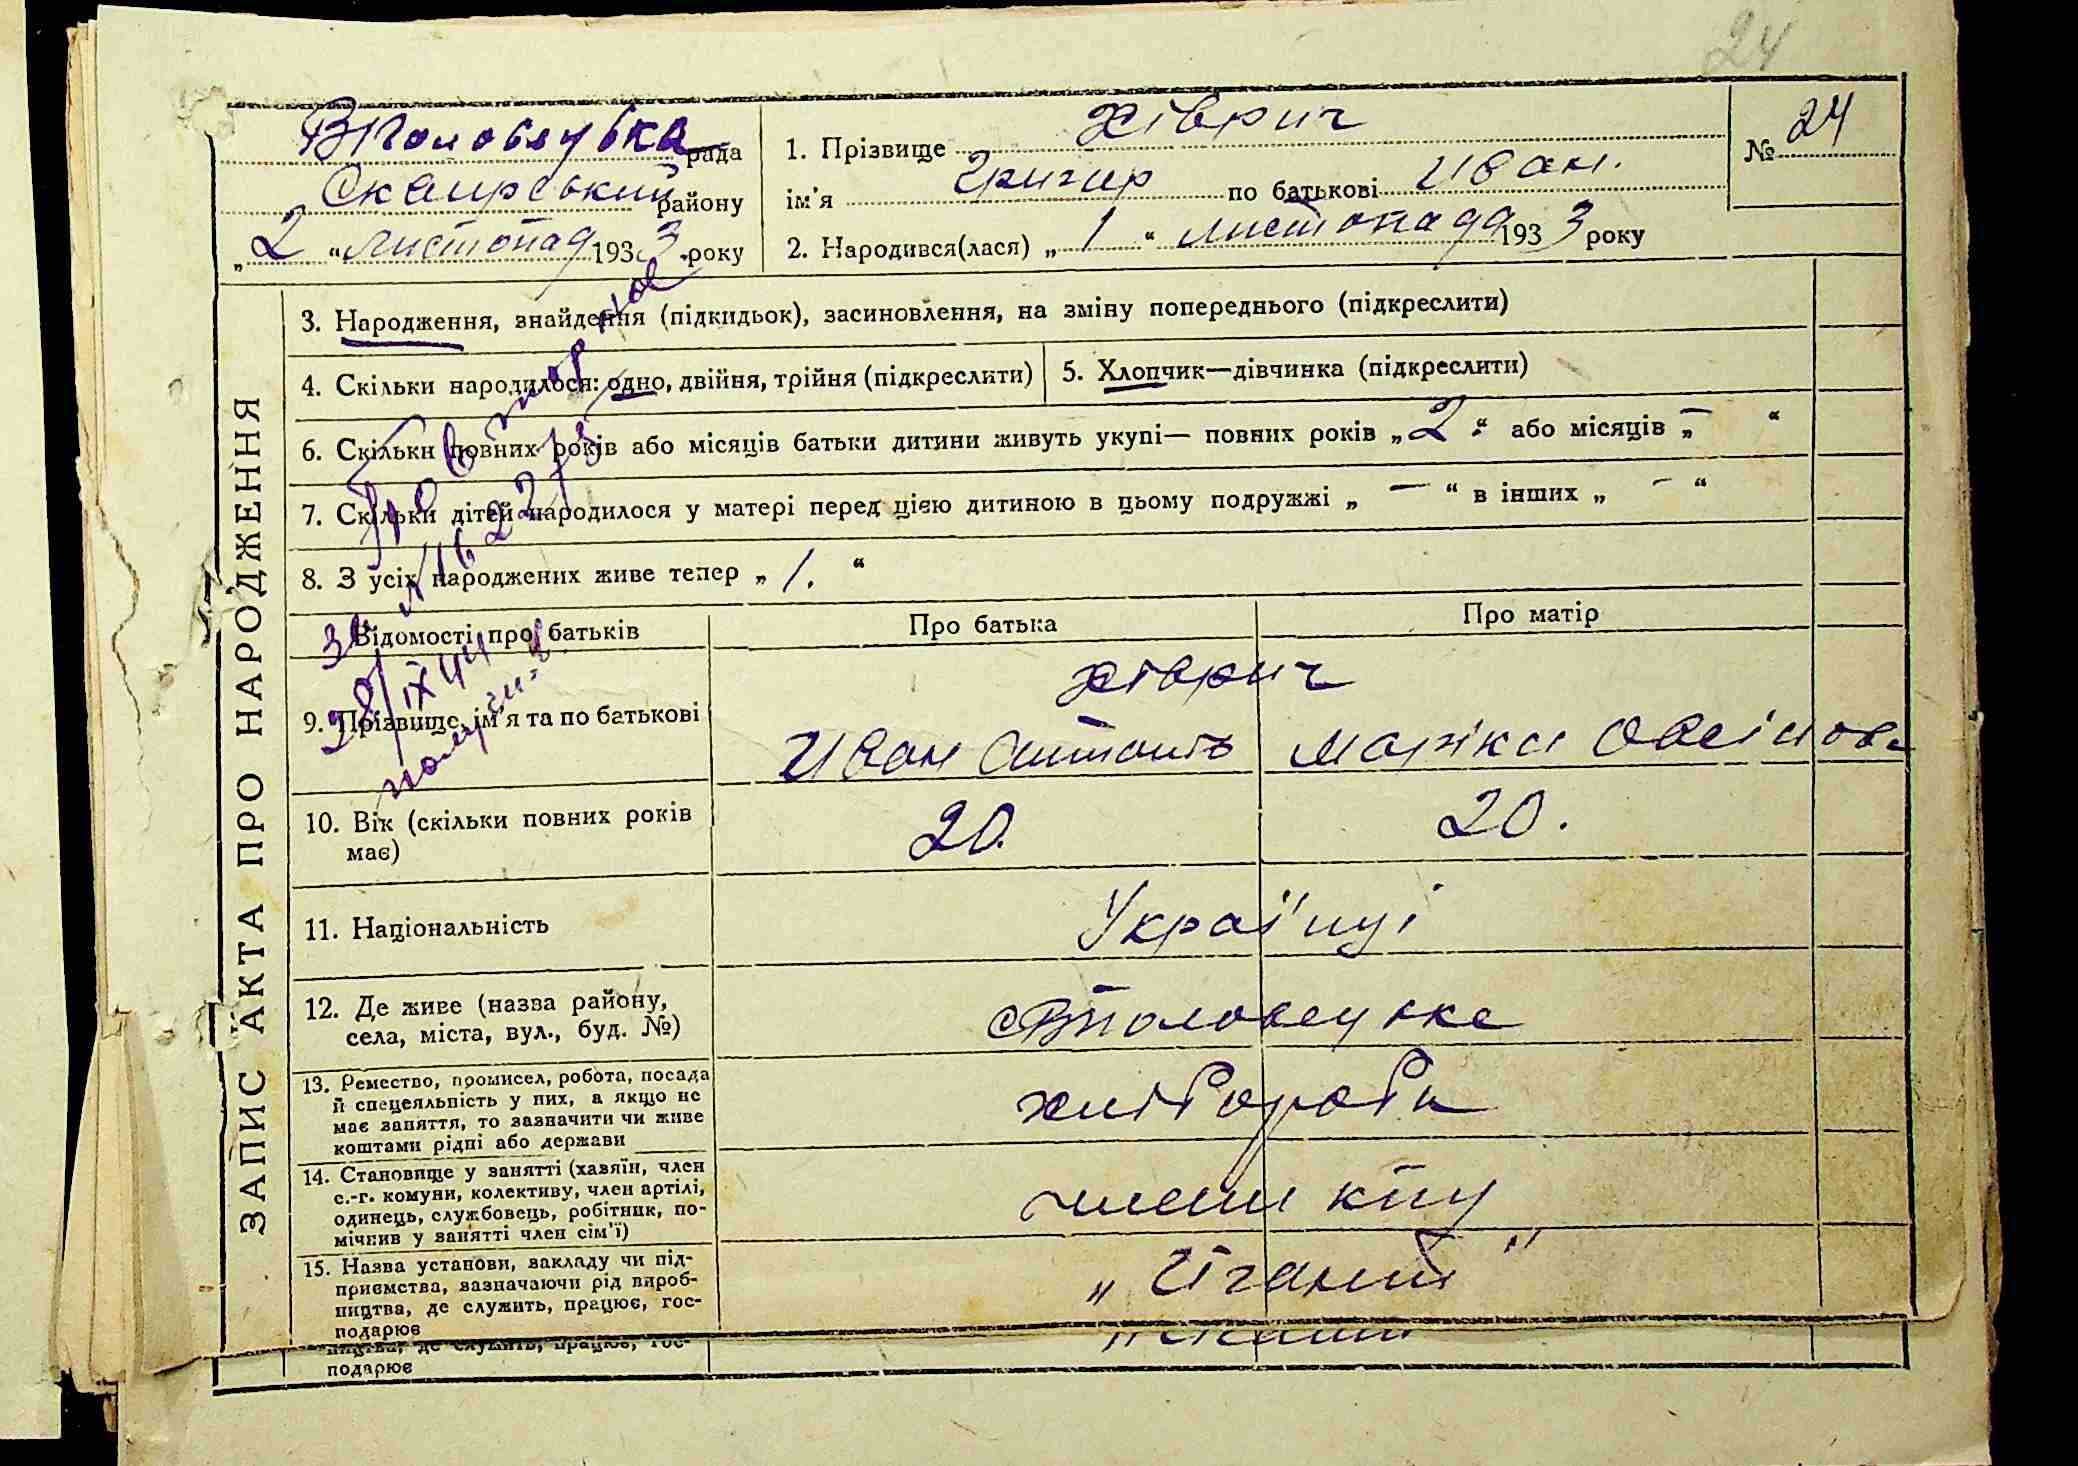 24
Вполовецька рада
Сквирський району
„ 2 “ листопад 1933 року
1. Прізвище Хіврич
ім'я Григир по батькові Иван.
2. Народився(лася) „ 1 “ листопада 1933 року
№ 24
ЗАПИС АКТА ПРО НАРОДЖЕННЯ
3. Народження, знайдення (підкидьок), засиновлення, на зміну попереднього (підкреслити)
4. Скільки народилося: одно, двійня, трійня (підкреслити)
5. Хлопчик—дівчинка (підкреслити)
6. Скільки повних років або місяців батьки дитини живуть укупі— повних років „ 2 “ або місяців „ — “
7. Скільки дітей народилося у матері перед цією дитиною в цьому подружжі „ — “ в інших „ — “
8. З усіх народжених живе тепер „ 1. “
Повторное
28/IX 44
Відомості про батьків
Про батька
Про матір
9. Прізвище, ім'я та по батькові
Хіврич
Иван
10. Вік (скільки повних років
має)
20.
20.
11. Національність
Україиці
12. Де живе (назва району,
села, міста, вул., буд. №)
13. Ремество, промисел, робота, посада
й спецеяльність у них, а якщо не
має заняття, то зазначити чи живе
коштами рідні або держави
хлібороби
14. Становище у занятті (хазяїн, член
с.-г. комуни, колективу, член артілі,
одинець, службовець, робітник, по-
мічнив у занятті член сім'ї)
члени
15. Назва установи, закладу чи під-
приємства, зазначаючи рід вироб-
ництва, де служить, працює, гос-
подарює
„ Гігант “
ництва, де служить, працює, гос-
подарює